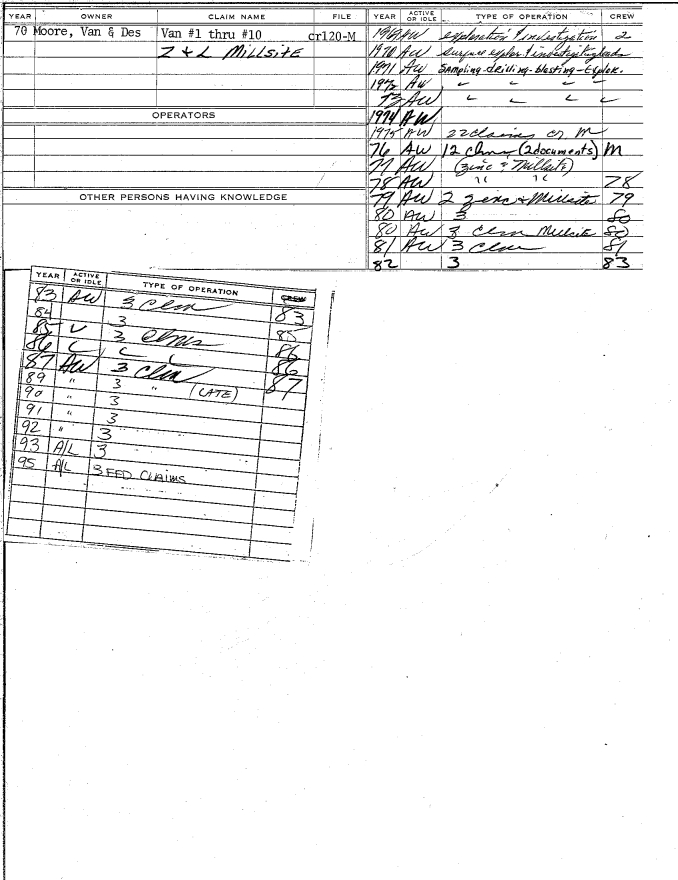 YEAR OWNER CLAIM NAME FILE
70 Moore, Van & Des Van #1 thru #10 cr120-M
Z & L MILLSITE
OPERATORS
OTHER PERSONS HAVING KNOWLEDGE
YEAR ACTIVE OR IDLE TYPE OF OPERATION CREW
1969 AW exploration & investigation 2
1970 AW surface explor. & investigating leads
1971 AW Sampling-drilling-blasting-Explor.
1972 AW " " " "
73 AW " " " "
1974 AW
1975 AW 22 claims cr M
76 AW 12 clms (2 documents) M
77 AW (zinc & Millsite)
78 AW " " 78
79 AW 2 zinc & Millsite 79
80 AW 3 80
80 AW 3 Clsm Millsite 80
81 AW 3 Clsm 81
82 3 83
YEAR ACTIVE OR IDLE TYPE OF OPERATION CREW
83 AW 3 Clsm 83
84 3
85 3 Clms 85
86 86
87 AW 3 Clsm 86
89 " 3 " (LATE) 87
90 " 3
91 " 3
92 " 3
93 A/L 3
95 A/L 3 FED CLAIMS